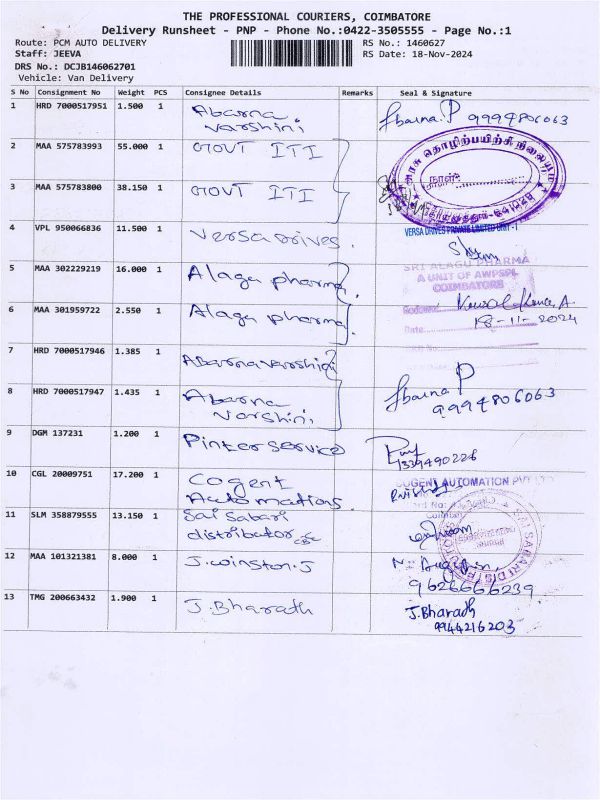 THE PROFESSIONAL COURIERS, COIMBATORE
Delivery Runsheet - PNP - Phone No.:0422-3505555 - Page No.:1
Route: PCM AUTO DELIVERY RS No.: 1460627
Staff: JEEVA RS Date: 18-Nov-2024
DRS No.: DCJB146062701
Vehicle: Van Delivery
S No Consignment No Weight PCS Consignee Details Remarks Seal & Signature
1 HRD 7000517951 1.500 1 Abarna
Varshini
Abarna. P 9994806063
2 MAA 575783993 55.000 1 GOVT ITI
அரசு தொழிற்பயிற்சி நிலையம்
நாள்:
3 MAA 575783800 38.150 1 GOVT ITI
641029
4 VPL 950066836 11.500 1 Versa Drives.
VERSA DRIVES PRIVATE LIMITED UNIT - I
5 MAA 302229219 16.000 1 Alagu pharma.
SRI ALAGU PHARMA
A UNIT OF AWPSPL
COIMBATORE
6 MAA 301959722 2.550 1 Alagu pharma.
18-11-2024
Date
7 HRD 7000517946 1.385 1 Abarna varshini
8 HRD 7000517947 1.435 1 Abarna
Varshini
Abarna P
9994806063
9 DGM 137231 1.200 1 Pinter service
10 CGL 20009751 17.200 1 Cogent
Automations.
COGENT AUTOMATION PVT LTD
11 SLM 358879555 13.150 1 Sai Sabari
distributor
SAI SABARI DISTRIBUTORS
12 MAA 101321381 8.000 1 J. winston. J
9626666239
13 TMG 200663432 1.900 1 J. Bharath
J. Bharath
9944216203